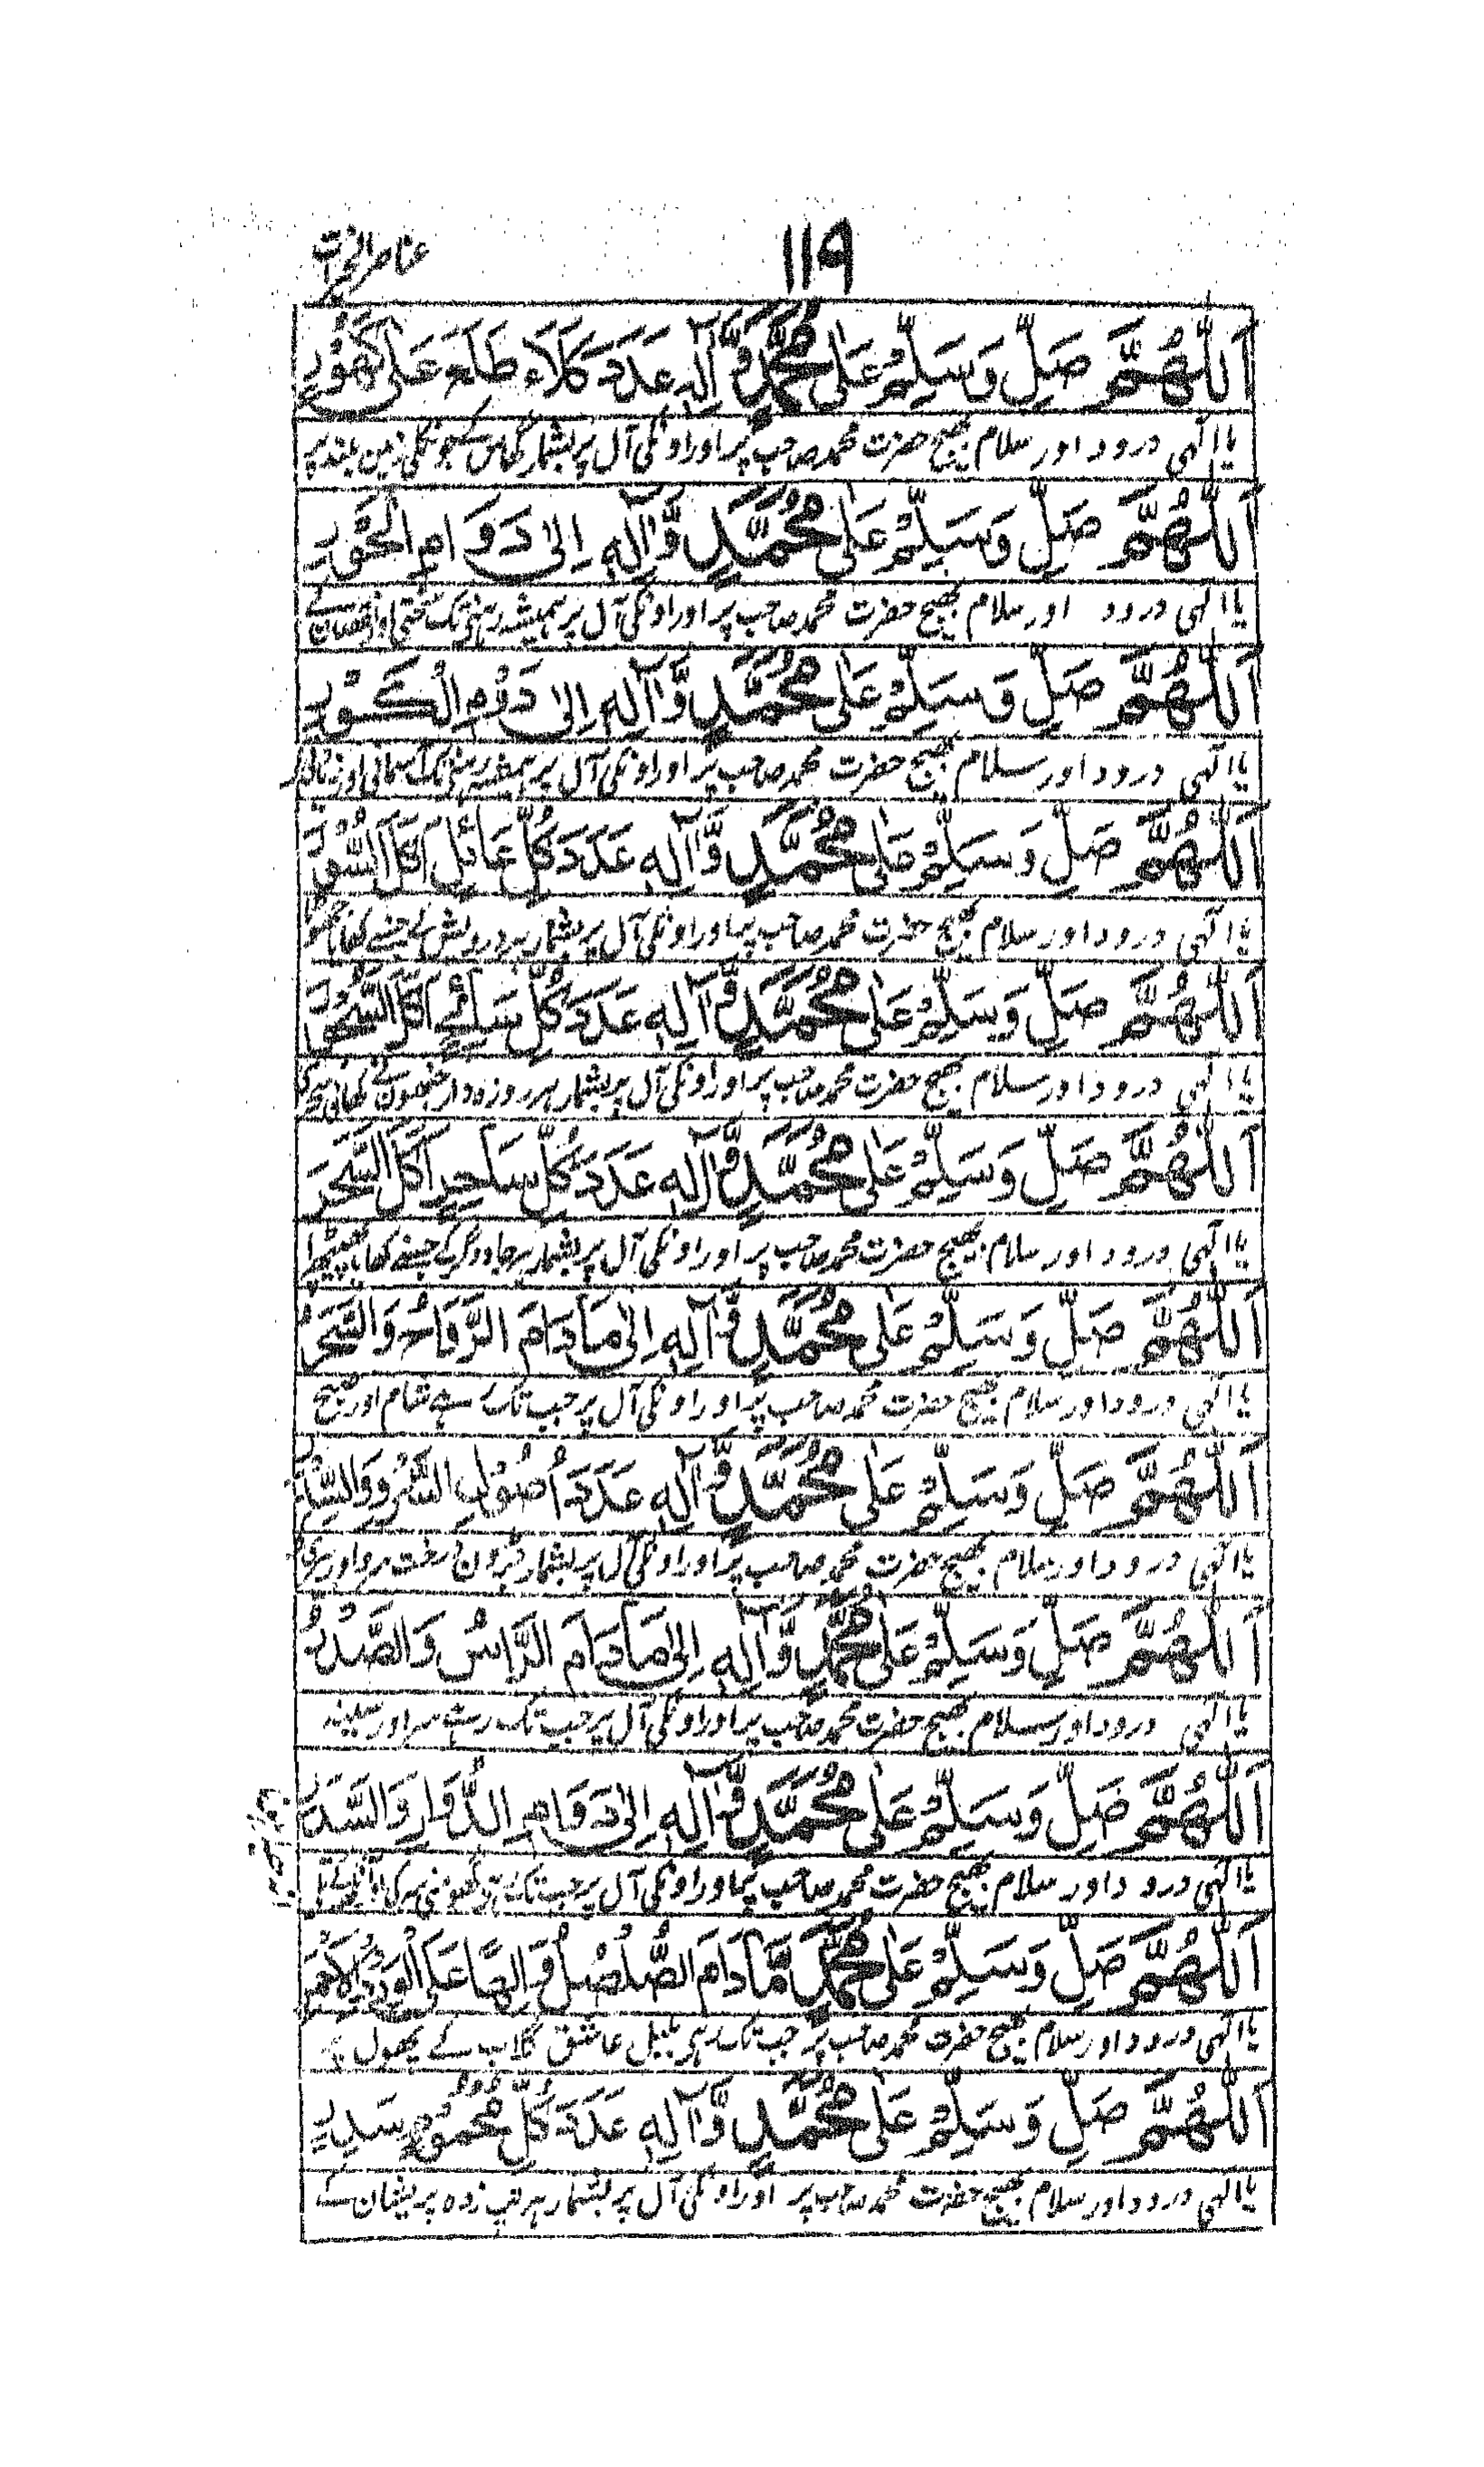 ۱۱۹
عناصر الخیرات
اَللّٰهُمَّ صَلِّ وَسَلِّمْ عَلٰى مُحَمَّدٍ وَّآلِهٖ عَدَدَ كَلَاءٍ طَلَعَ عَلٰى
یا الٰہی درود اور سلام بھیج حضرت محمد صاحب پر اور اونکی آل پر بشمار گھاس کے جو نکلی زمین بلند پر
اَللّٰهُمَّ صَلِّ وَسَلِّمْ عَلٰى مُحَمَّدٍ وَّآلِهٖ اِلٰى دَوَامِ الْحَوْرِ
یا الٰہی درود اور سلام بھیج حضرت محمد صاحب پر اور اونکی آل پر ہمیشہ رہنے تک
اَللّٰهُمَّ صَلِّ وَسَلِّمْ عَلٰى مُحَمَّدٍ وَّآلِهٖ اِلٰى دَوْمِ الْكَوْرِ
یا الٰہی درود اور سلام بھیج حضرت محمد صاحب پر اور اونکی آل پر ہمیشہ رہنے تک
اَللّٰهُمَّ صَلِّ وَسَلِّمْ عَلٰى مُحَمَّدٍ وَّآلِهٖ عَدَدَ كُلِّ عَائِلٍ اَكَلَ السُّؤْرَ
یا الٰہی درود اور سلام بھیج حضرت محمد صاحب پر اور اونکی آل پر بشمار ہر درویش کے جسنے کھایا جھوٹا
اَللّٰهُمَّ صَلِّ وَسَلِّمْ عَلٰى مُحَمَّدٍ وَّآلِهٖ عَدَدَ كُلِّ اَكَلَ السَّحُوْرَ
یا الٰہی درود اور سلام بھیج حضرت محمد صاحب پر اور اونکی آل پر بشمار ہر روزہ دار جنھون نے کھائی سحری
اَللّٰهُمَّ صَلِّ وَسَلِّمْ عَلٰى مُحَمَّدٍ وَّآلِهٖ عَدَدَ كُلِّ سَاحِرٍ اَكَلَ السَّحَرَ
یا الٰہی درود اور سلام بھیج حضرت محمد صاحب پر اور اونکی آل پر بشمار ہر جادوگر کے جسنے کھایا پھیپھڑا
اَللّٰهُمَّ صَلِّ وَسَلِّمْ عَلٰى مُحَمَّدٍ وَّآلِهٖ اِلٰى مَا دَامَ الرَّوَاحُ وَالسَّحَرُ
یا الٰہی درود اور سلام بھیج حضرت محمد صاحب پر اور اونکی آل پر جب تک رہے شام اور صبح
اَللّٰهُمَّ صَلِّ وَسَلِّمْ عَلٰى مُحَمَّدٍ وَّآلِهٖ عَدَدَ اُصُوْلِ السَّرْوِ
یا الٰہی درود اور سلام بھیج حضرت محمد صاحب پر اور اونکی آل پر بشمار جڑون درخت سرو اور
اَللّٰهُمَّ صَلِّ وَسَلِّمْ عَلٰى مُحَمَّدٍ وَّآلِهٖ اِلٰى مَا دَامَ الرَّاسُ وَالصَّدْرُ
یا الٰہی درود اور سلام بھیج حضرت محمد صاحب پر اور اونکی آل پر جب تک رہے سر اور سینہ
اَللّٰهُمَّ صَلِّ وَسَلِّمْ عَلٰى مُحَمَّدٍ وَّآلِهٖ اِلٰى دَوَامِ الدُّوَارِ وَالسَّدَرِ
یا الٰہی درود اور سلام بھیج حضرت محمد صاحب پر اور اونکی آل پر جب تک رہے
اَللّٰهُمَّ صَلِّ وَسَلِّمْ عَلٰى مُحَمَّدٍ مَّا دَامَ الصُّلْصُلُ عَلَى الْوَرْدِ الْاَحْمَرِ
یا الٰہی درود اور سلام بھیج حضرت محمد صاحب پر جب تک رہے بلبل عاشق گلاب کے پھول پر
اَللّٰهُمَّ صَلِّ وَسَلِّمْ عَلٰى مُحَمَّدٍ وَّآلِهٖ عَدَدَ كُلِّ مَحْمُوْمٍ سَدِرٍ
یا الٰہی درود اور سلام بھیج حضرت محمد صاحب پر اور اونکی آل پر بشمار ہر تپ زدہ پریشان کے